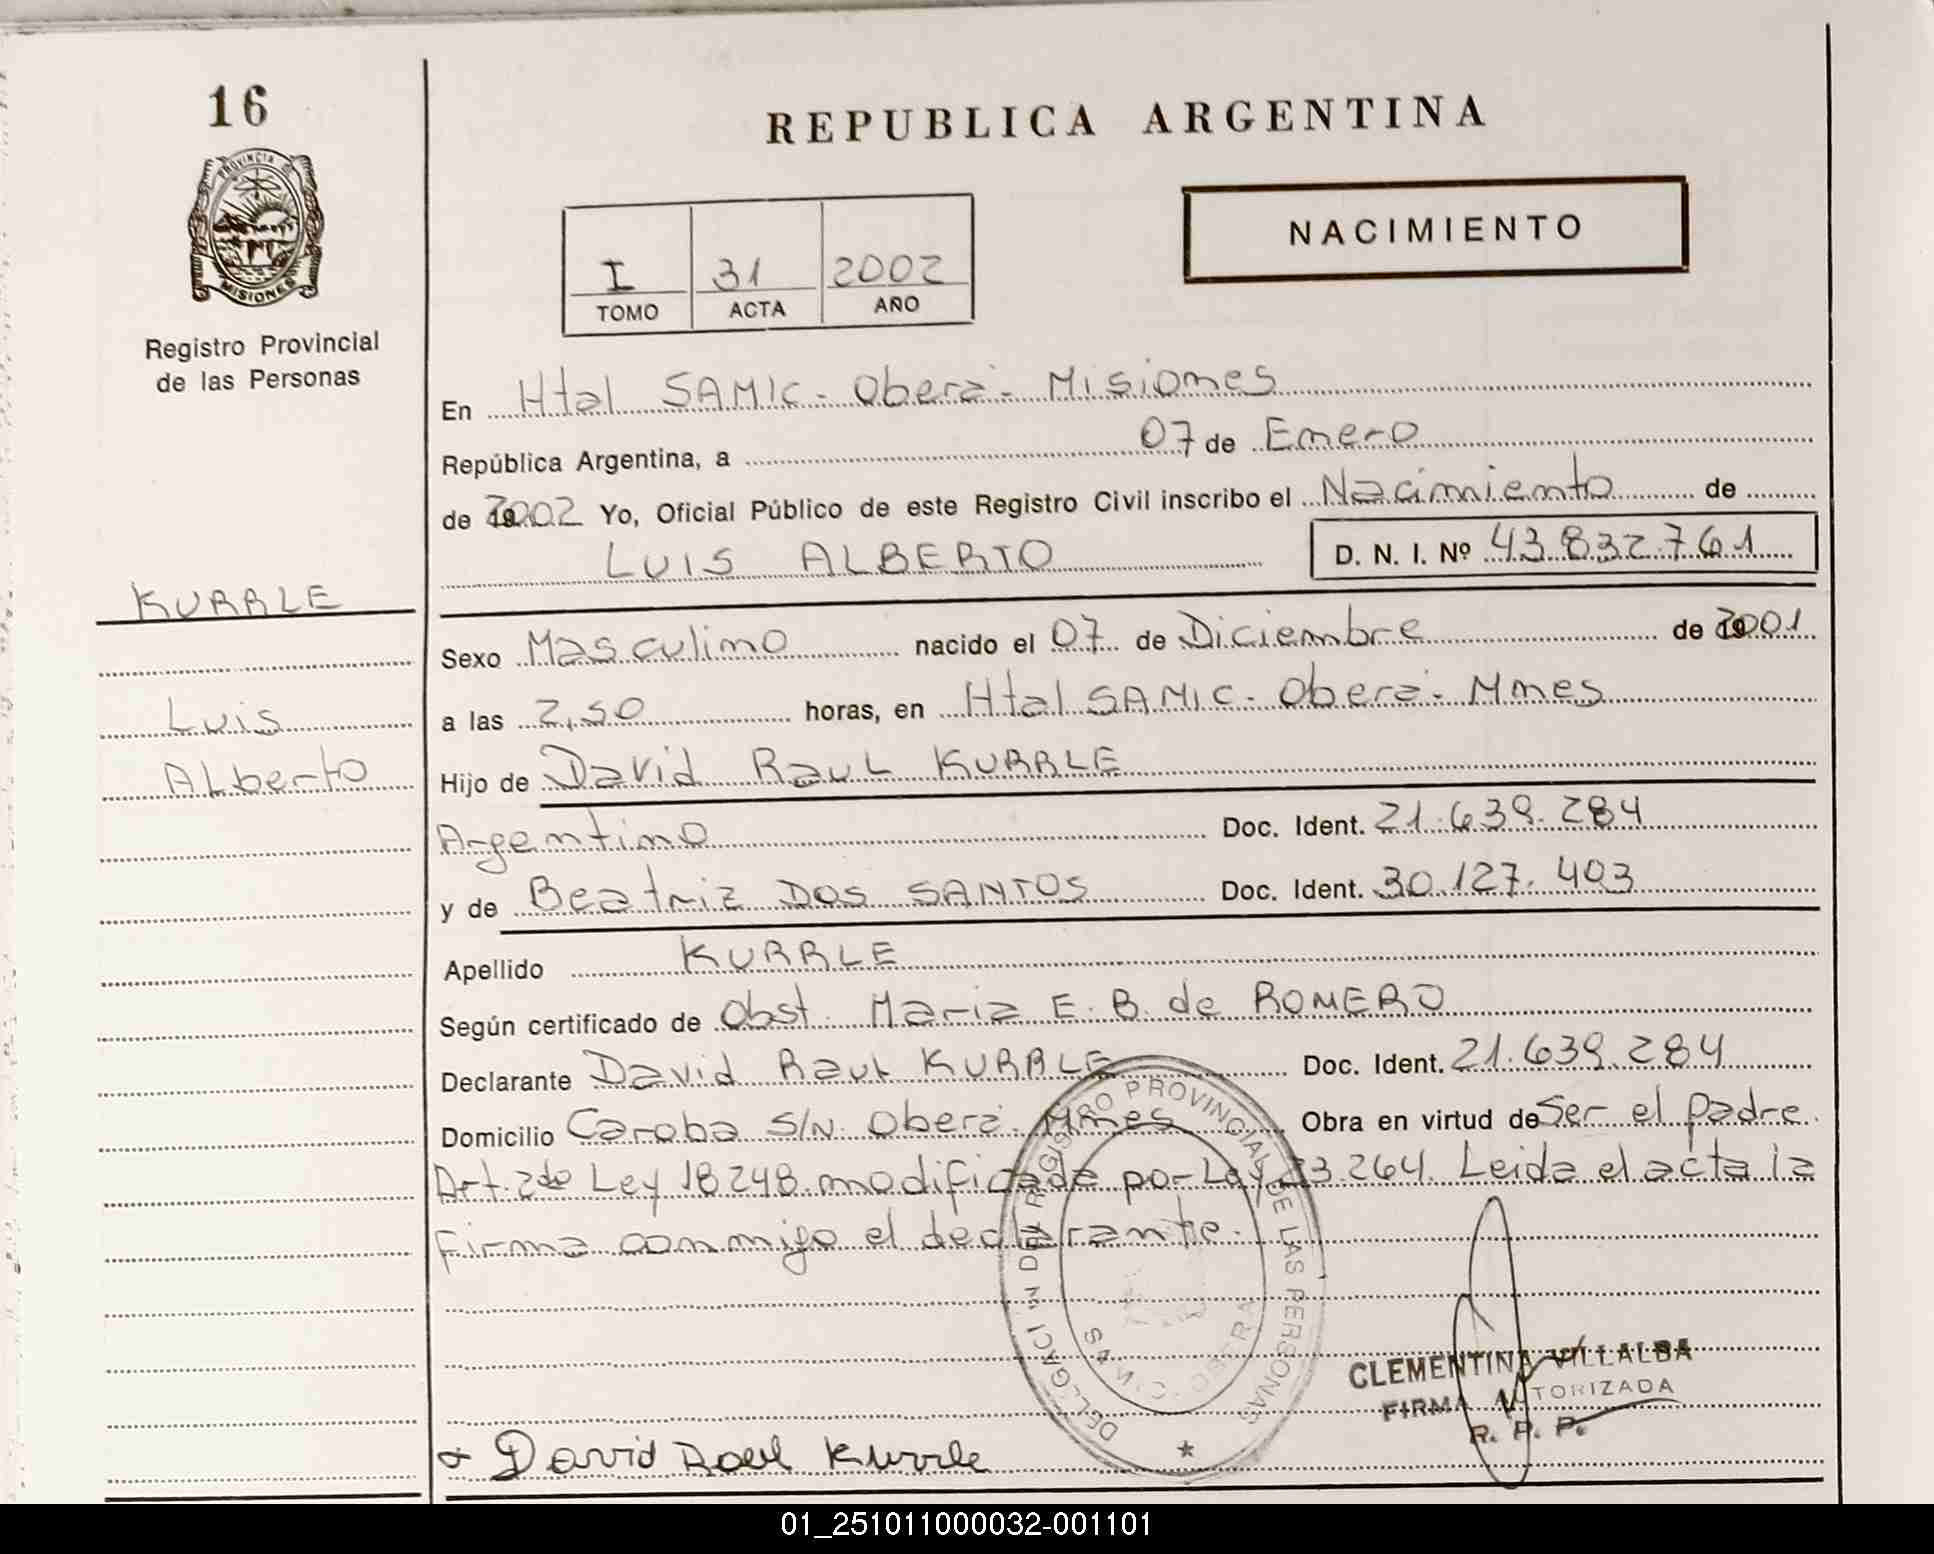 16
REPUBLICA ARGENTINA
PROVINCIA D
MISIONES
Registro Provincial
de las Personas
NACIMIENTO
I 31 2002
TOMO ACTA AÑO
En Htal SAMIC - Oberá - Misiones
República Argentina, a 07 de Enero
de 2002 Yo, Oficial Público de este Registro Civil inscribo el Nacimiento de
LUIS ALBERTO D. N. I. Nº 43.832.761
KURRLE
Sexo Masculino nacido el 07 de Diciembre de 2001
Luis
Alberto
a las 2,50 horas, en Htal SAMIC - Oberá - Mnes
Hijo de David Raul KURRLE
Argentino Doc. Ident. 21.639.284
y de Beatriz DOS SANTOS Doc. Ident. 30.127.403
Apellido KURRLE
Según certificado de Obst. Maria E. B. de ROMERO
Declarante David Raul KURRLE Doc. Ident. 21.639.284
Domicilio Caroba S/N. Oberá. Mnes Obra en virtud de Ser el padre.
Art. 2do Ley 18248 modificada por Ley 23.264. Leida el acta la
firma conmigo el declarante.
REGISTRO PROVINCIAL DE LAS PERSONAS
CLEMENTINA VILLALBA
FIRMA AUTORIZADA
R. P. P.
David Raul Kurrle
01_251011000032-001101